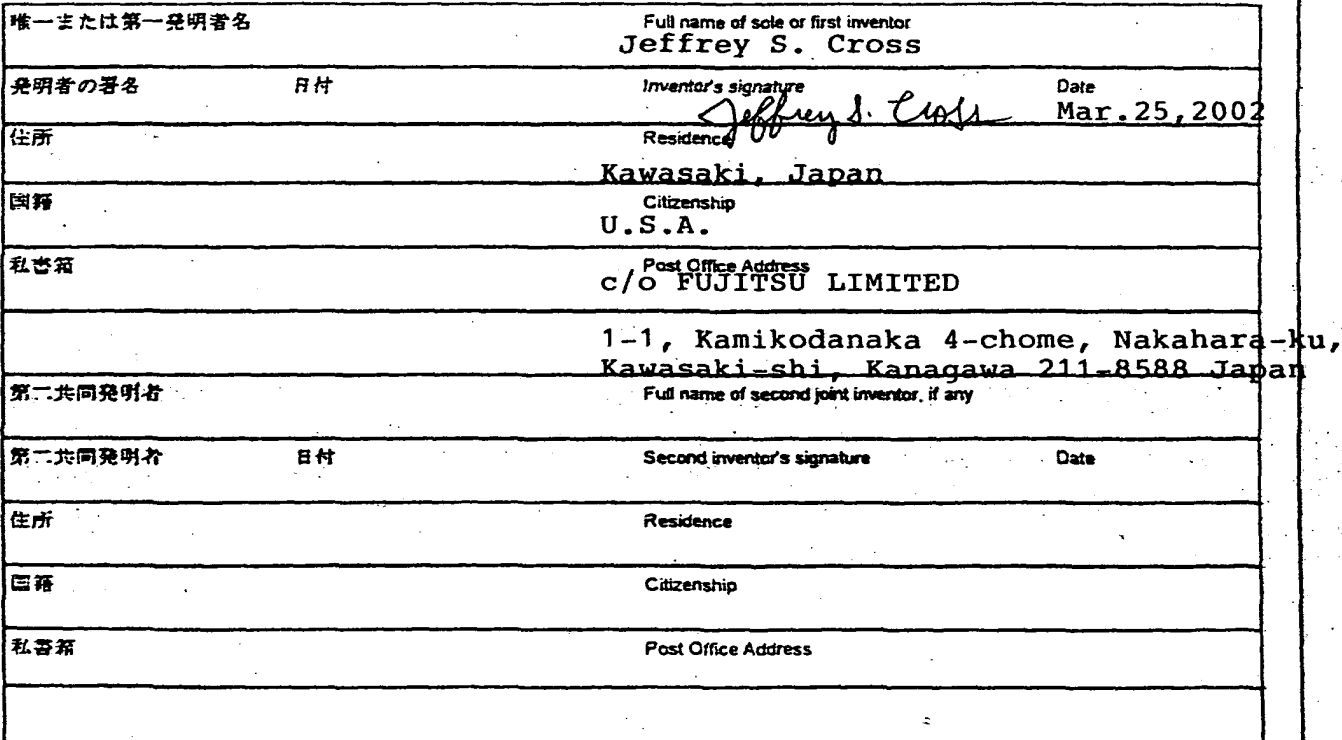 唯一または第一発明者名 Full name of sole or first inventor
Jeffrey S. Cross
発明者の署名 日付 Inventor's signature Date
Jeffrey S. Cross Mar.25,2002
住所 Residence
Kawasaki, Japan
国籍 Citizenship
U.S.A.
私書箱 Post Office Address
c/o FUJITSU LIMITED
1-1, Kamikodanaka 4-chome, Nakahara-ku,
Kawasaki-shi, Kanagawa 211-8588 Japan
第二共同発明者 Full name of second joint inventor, if any
第二共同発明者 日付 Second inventor's signature Date
住所 Residence
国籍 Citizenship
私書箱 Post Office Address